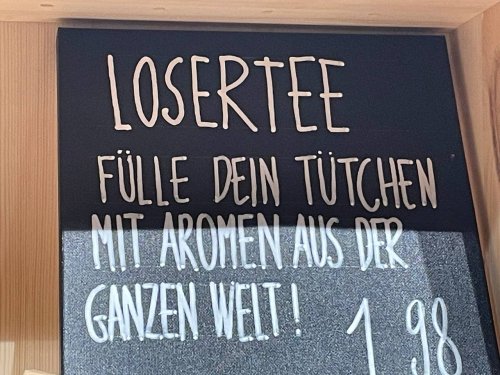 LOSERTEE
FÜLLE DEIN TÜTCHEN
MIT AROMEN AUS DER
GANZEN WELT!
1 98